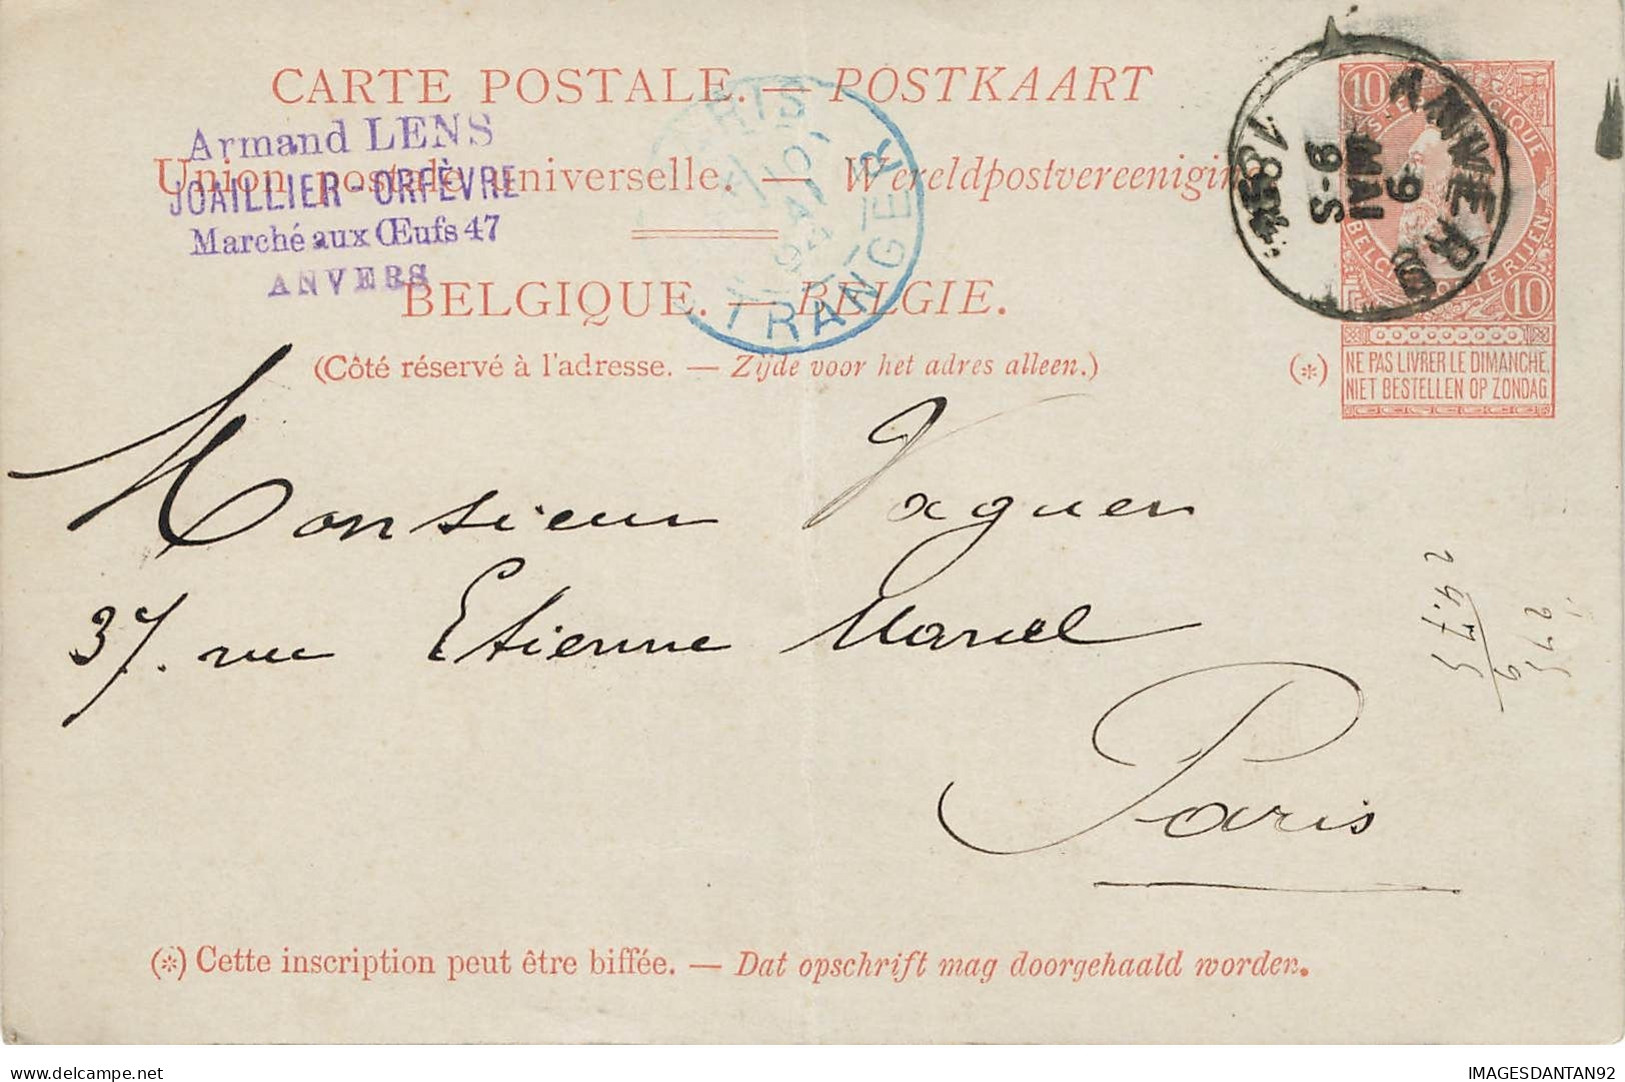 CARTE POSTALE. — POSTKAART
Armand LENS
Union postale universelle. — Wereldpostvereeniging
JOAILLIER-ORFÈVRE
Marché aux Œufs 47
ANVERS
BELGIQUE. — BELGIE.
(Côté réservé à l'adresse. — Zijde voor het adres alleen.)
ETRANGER
ANVERS
9-S
9
MAI
10
10 10
(*) NE PAS LIVRER LE DIMANCHE.
NIET BESTELLEN OP ZONDAG.
Monsieur Vaguer
37. rue Etienne Marcel
Paris
24.75
275
9
(*) Cette inscription peut être biffée. — Dat opschrift mag doorgehaald worden.
IMAGESDANTAN92
delcampe.net